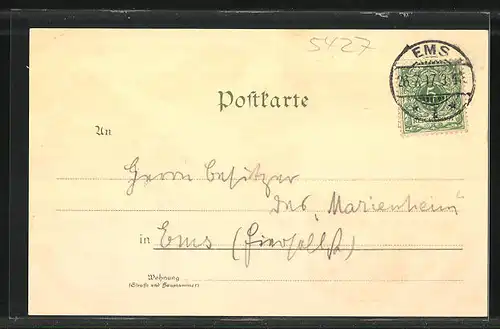 5427
EMS
Postkarte
An
Herrn Besitzer
des „Marienheim“
in Ems (hierselbst)
Wohnung
(Straße und Hausnummer)